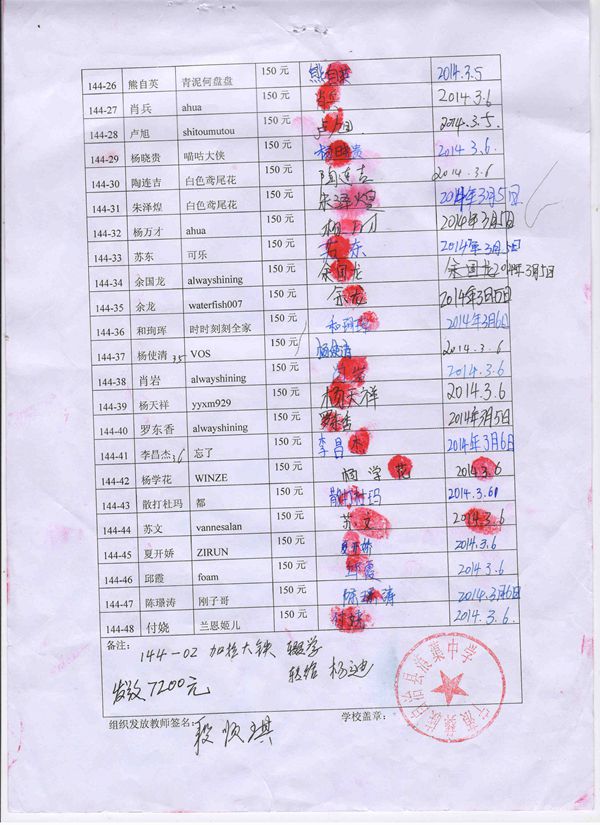 144-26 熊自英 青泥何盘盘 150 元 熊自英 2014.3.5
144-27 肖兵 ahua 150 元 肖兵 2014.3.6
144-28 卢旭 shitoumutou 150 元 卢旭 2014.3.5.
144-29 杨晓贵 喵咕大侠 150 元 杨晓贵 2014.3.6.
144-30 陶连吉 白色鸢尾花 150 元 陶连吉 2014.3.6
144-31 朱泽煌 白色鸢尾花 150 元 朱泽煌 2014年3月5日
144-32 杨万才 ahua 150 元 杨万才 2014年3月5日
144-33 苏东 可乐 150 元 苏东 2014年3月5日
144-34 余国龙 alwayshining 150 元 余国龙 余国龙 2014年3月5日
144-35 余龙 waterfish007 150 元 余龙 2014年3月5日
144-36 和珣珲 时时刻刻全家 150 元 和珣珲 2014年3月6日
144-37 杨使清 35 VOS 150 元 杨使清 2014.3.6
144-38 肖岩 alwayshining 150 元 肖岩 2014.3.6
144-39 杨天祥 yyxm929 150 元 杨天祥 2014.3.6
144-40 罗东香 alwayshining 150 元 2014年3月5日
144-41 李昌杰 36 忘了 150 元 李昌杰 2014年3月6日
144-42 杨学花 WINZE 150 元 杨学花 2014.3.6
144-43 散打杜玛 都 150 元 散打杜玛 2014.3.6
144-44 苏文 vannesalan 150 元 苏文 2014.3.6
144-45 夏开娇 ZIRUN 150 元 夏开娇 2014.3.6
144-46 邱霞 foam 150 元 邱霞 2014.3.6
144-47 陈璟涛 刚子哥 150 元 陈璟涛 2014.3月6日
144-48 付娆 兰恩姬儿 150 元 付娆 2014.3.6.
备注: 144-02 加拉大铁 辍学
转给 杨迪
发放7200元
组织发放教师签名: 段顺琪 学校盖章:
宁蒗彝族自治县 中学